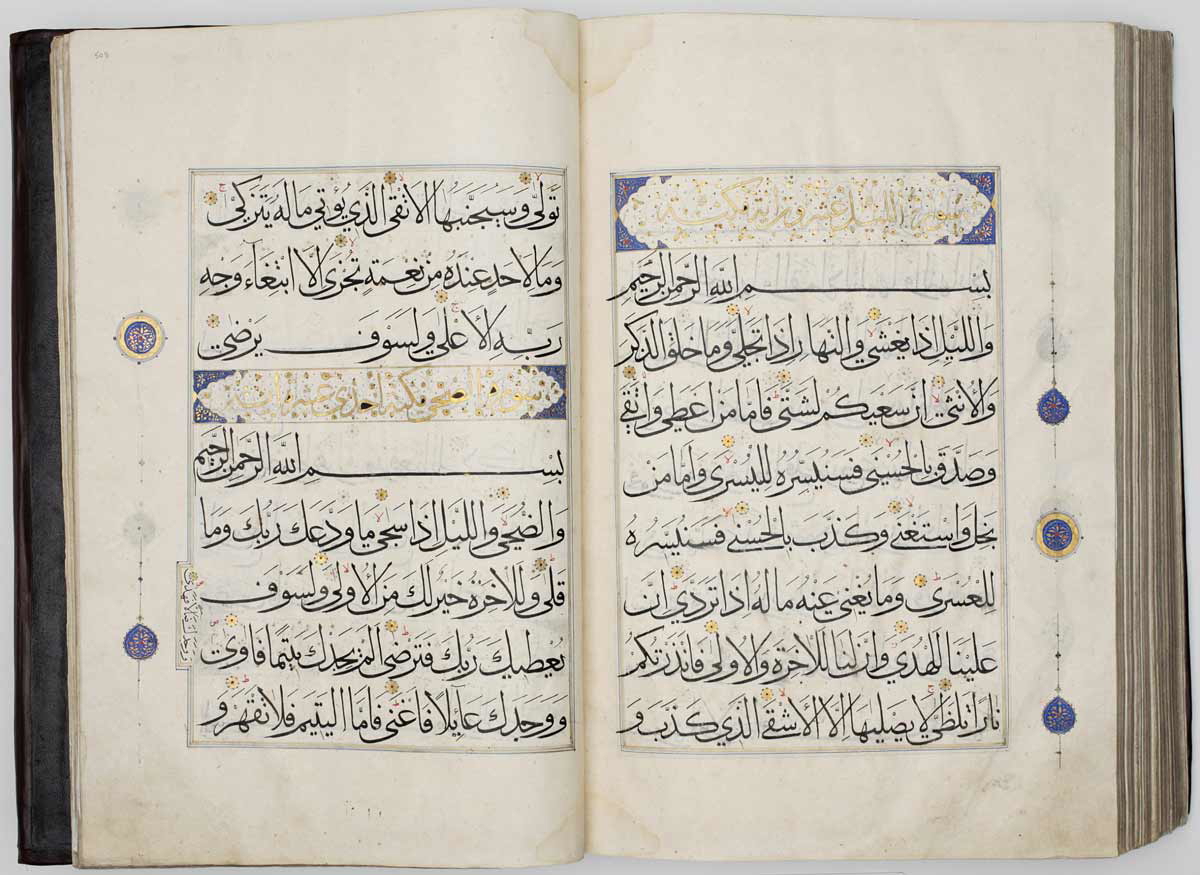 سورة الليل عشرون اية مكية
بِسْمِ اللَّهِ الرَّحْمٰنِ الرَّحِيمِ
وَاللَّيْلِ اِذَا يَغْشٰى وَالنَّهَارِ اِذَا تَجَلّٰى وَمَا خَلَقَ الذَّكَرَ
وَالْاُنْثٰى اِنَّ سَعْيَكُمْ لَشَتّٰى فَاَمَّا مَنْ اَعْطٰى وَاتَّقٰى
وَصَدَّقَ بِالْحُسْنٰى فَسَنُيَسِّرُهُ لِلْيُسْرٰى وَاَمَّا مَنْ
بَخِلَ وَاسْتَغْنٰى وَكَذَّبَ بِالْحُسْنٰى فَسَنُيَسِّرُهُ
لِلْعُسْرٰى وَمَا يُغْنٖى عَنْهُ مَالُهُ اِذَا تَرَدّٰى اِنَّ
عَلَيْنَا لَلْهُدٰى وَاِنَّ لَنَا لَلْاٰخِرَةَ وَالْاُولٰى فَاَنْذَرْتُكُمْ
نَارًا تَلَظّٰى لَا يَصْلٰيهَا اِلَّا الْاَشْقَى الَّذٖى كَذَّبَ وَ
تَوَلّٰى وَسَيُجَنَّبُهَا الْاَتْقَى الَّذٖى يُؤْتٖى مَالَهُ يَتَزَكّٰى
وَمَا لِاَحَدٍ عِنْدَهُ مِنْ نِعْمَةٍ تُجْزٰى اِلَّا ابْتِغَاءَ وَجْهِ
رَبِّهِ الْاَعْلٰى وَلَسَوْفَ يَرْضٰى
سورة الضحى مكية احدى عشر اية
بِسْمِ اللَّهِ الرَّحْمٰنِ الرَّحِيمِ
وَالضُّحٰى وَاللَّيْلِ اِذَا سَجٰى مَا وَدَّعَكَ رَبُّكَ وَمَا
قَلٰى وَلَلْاٰخِرَةُ خَيْرٌ لَكَ مِنَ الْاُولٰى وَلَسَوْفَ
يُعْطٖيكَ رَبُّكَ فَتَرْضٰى اَلَمْ يَجِدْكَ يَتٖيمًا فَاٰوٰى
وَوَجَدَكَ عَائِلًا فَاَغْنٰى فَاَمَّا الْيَتٖيمَ فَلَا تَقْهَرْ وَ
وَوَجَدَكَ ضَالًّا فَهَدٰى